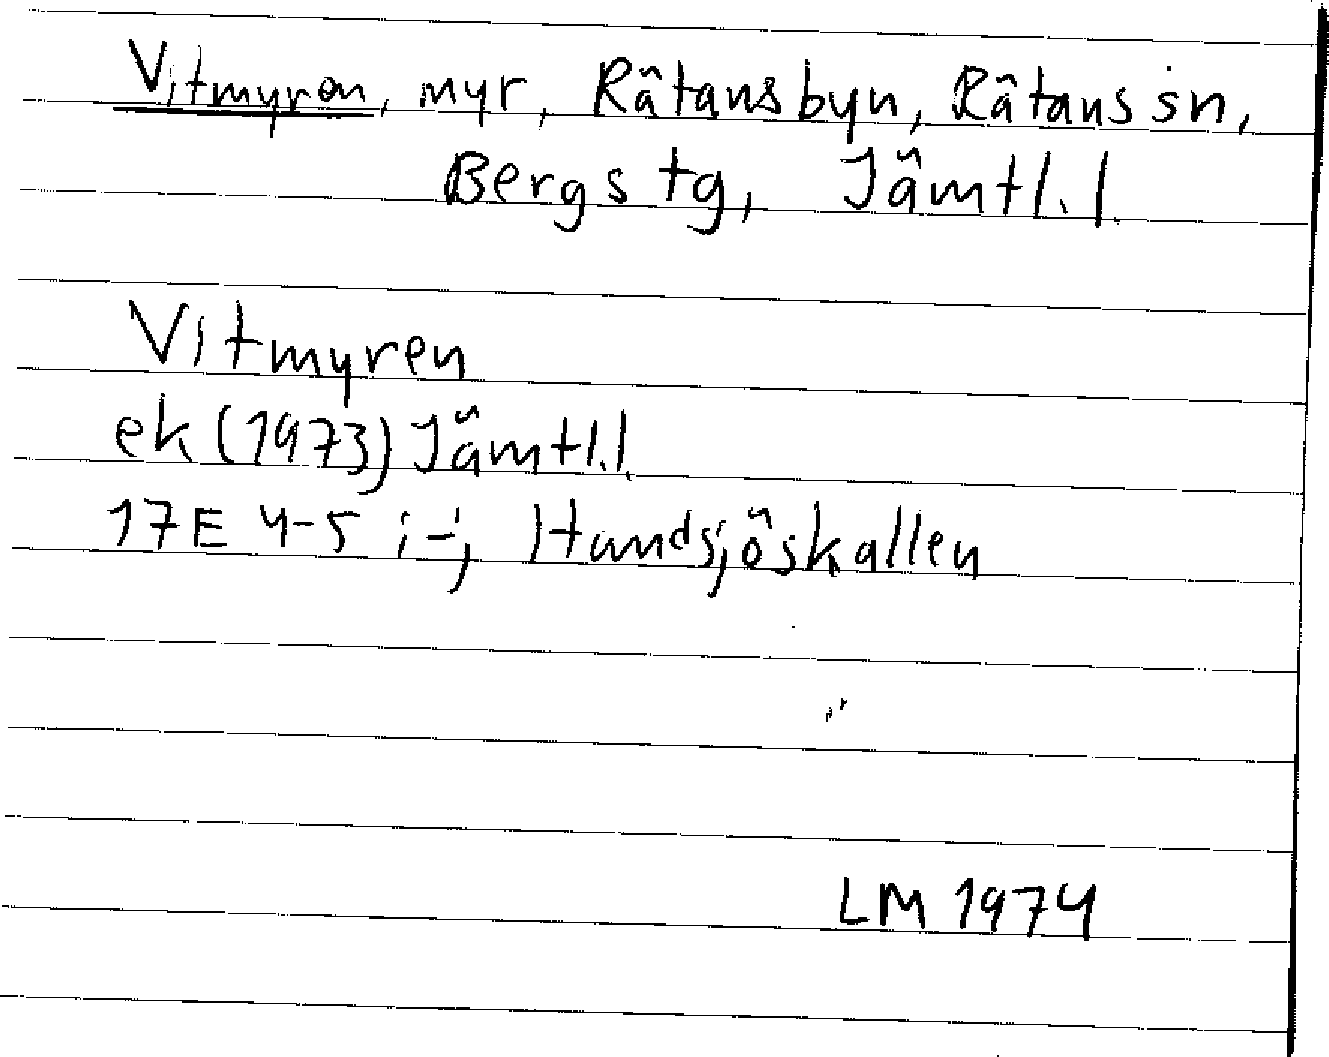 Vitmyren, myr, Rätansbyn, Rätans sn,
Bergs tg, Jämtl. l.
Vitmyren
ek (1973) Jämtl. l.
17E 4-5 i-j, Handsjöskallen
LM 1974